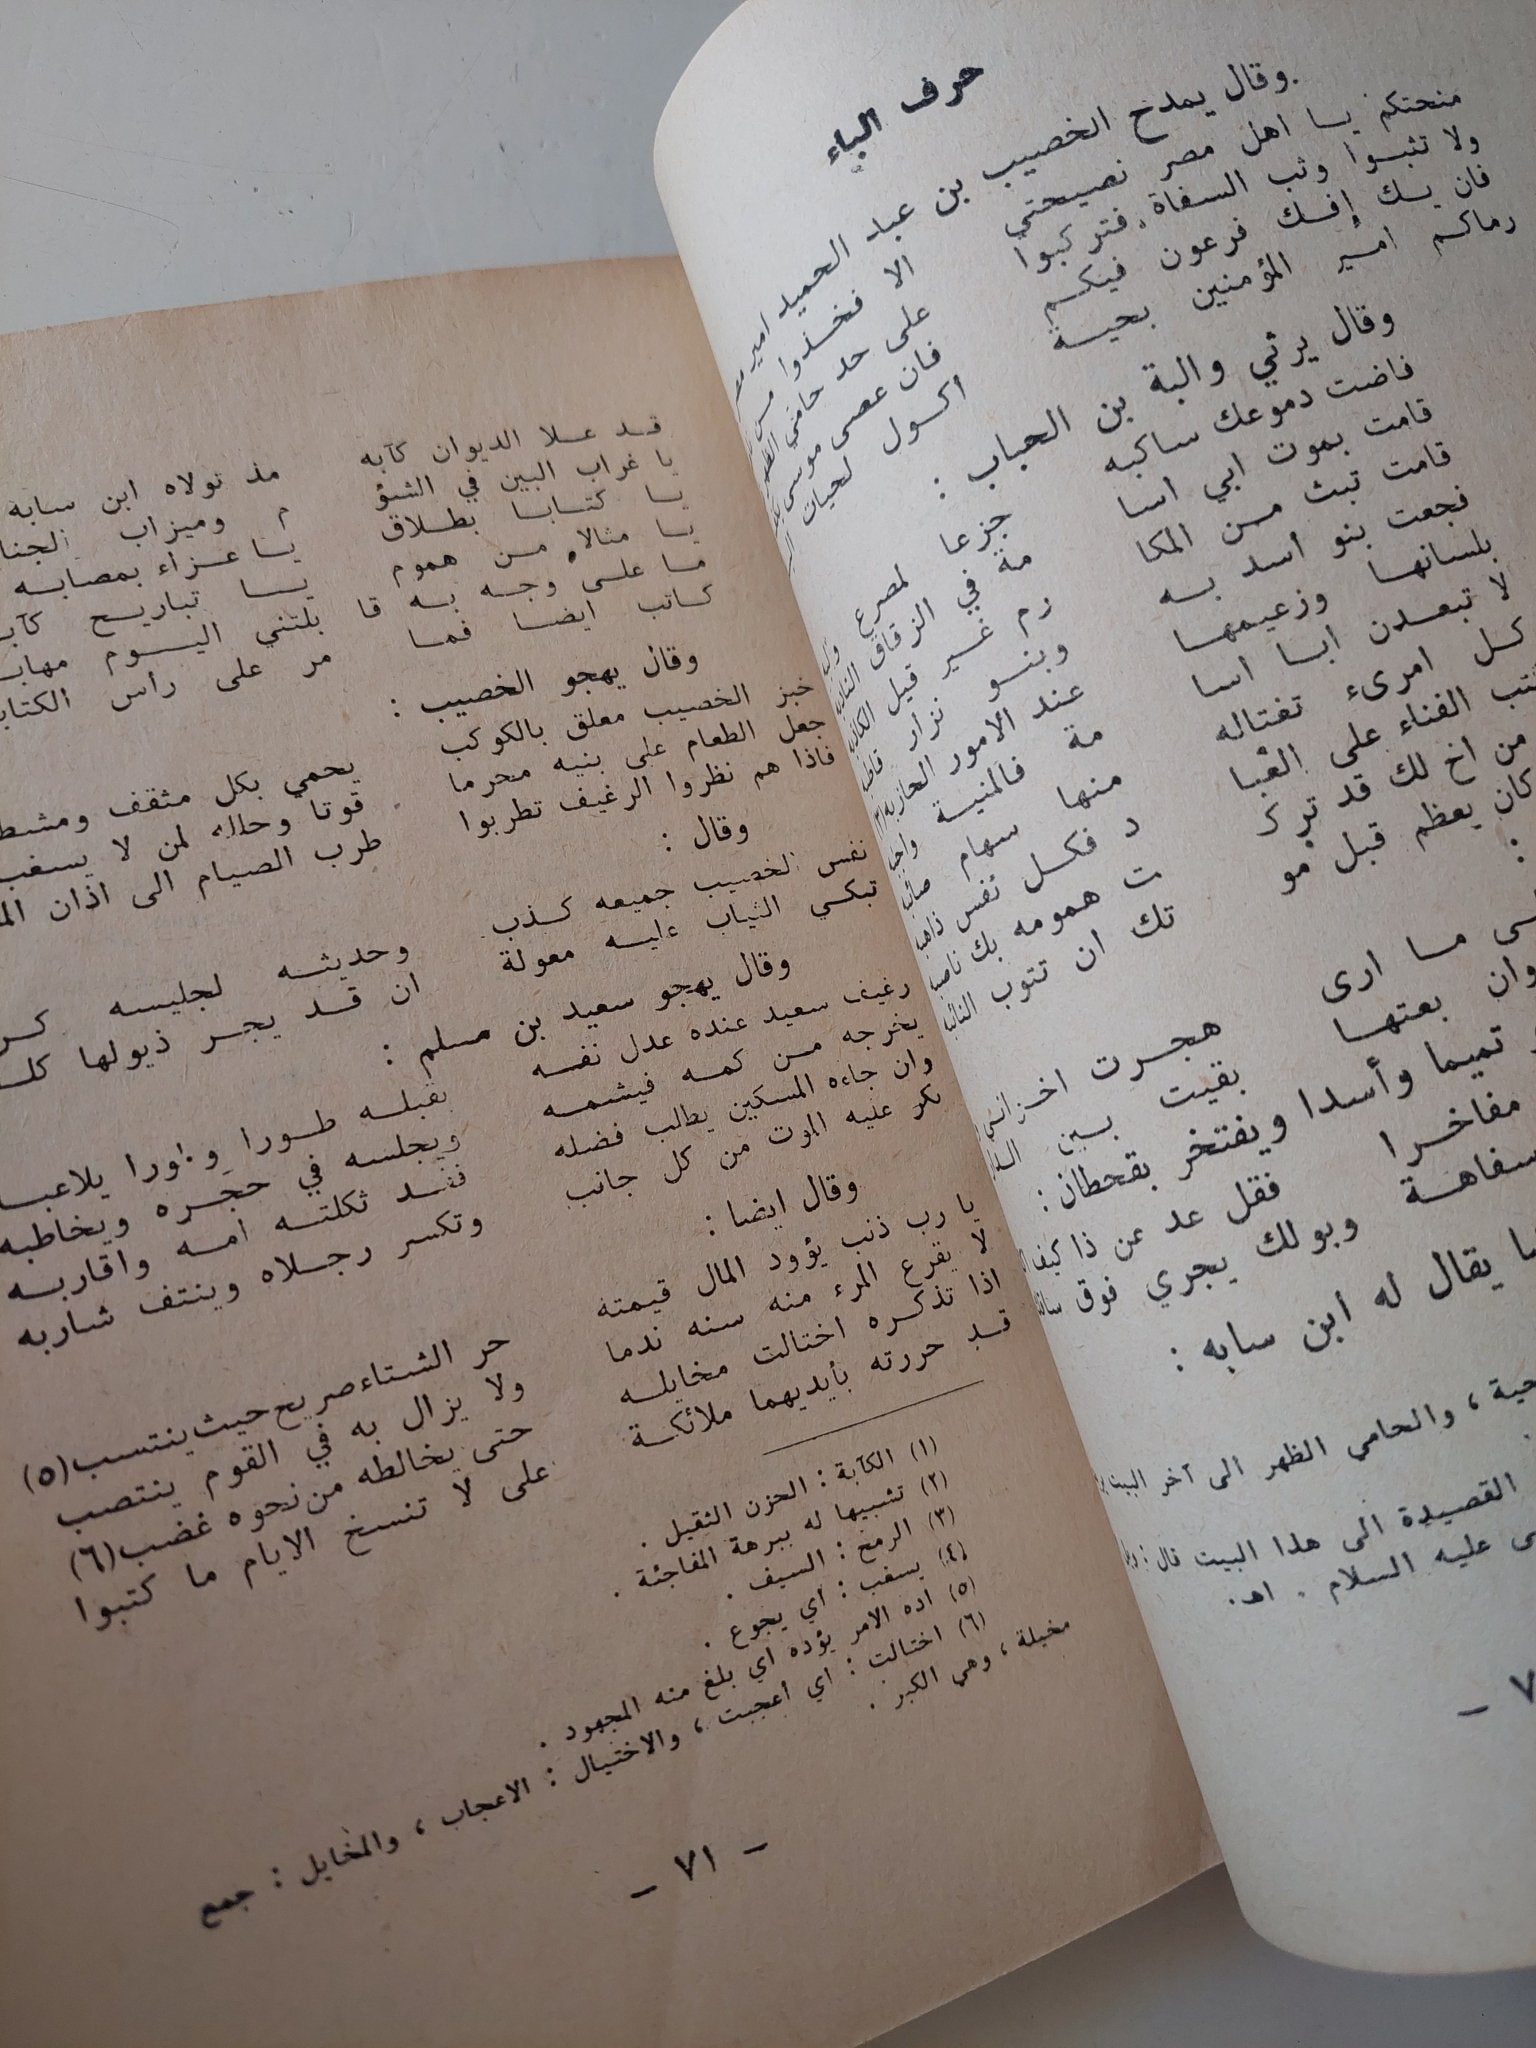 حرف الباء
وقال يمدح الخصيب بن عبد الحميد امير
منحتكم يا اهل مصر نصيحتي الا فخذوا من
ولا تثبوا وثب السفاة فتركبوا على حد حامي الظهر
فان يك إفك فرعون فيكم فان عصى موسى
رماكم امير المؤمنين بحية اكول لحيات
وقال يرثي والبة بن الحباب :
فاضت دموعك ساكبه جزعا لمصرع
قامت بموت ابي اسا مة في الزقاق
قامت تبث من المكا رم غير قيل
فجعت بنو أسد به وبنو نزار
بلسانها وزعيمها عند الامور الحازبه (٣)
لا تبعدن ابا اسا مة فالمنية
كل امرىء تغتاله منها سهام
الفناء على العبا د فكل نفس
من اخ لك قد ترك ت همومه بك
كان يعظم قبل مو تك ان تتوب
:
ما ارى هجرت
وان بعتها بقيت بين
تميما وأسدا ويفتخر بقحطان :
مفاخرا فقل عد عن ذا كيف
سفاهة وبولك يجري فوق
يقال له ابن سابه :
، والحامي الظهر الى آخر البيت
القصيدة الى هذا البيت قال :
عليه السلام . اهـ .
قد علا الديوان كآبه مذ تولاه ابن سابه
يا غراب البين في الشؤ م وميزاب
يا كتابا بطلاق يا عزاء بمصابه
يا مثالا من هموم يا تباريح
ما على وجه به قا بلتني اليوم
كاتب ايضا فما مر على رأس
وقال يهجو الخصيب :
خبز الخصيب معلق بالكوكب يحمي بكل مثقف
جعل الطعام على بنيه محرما قوتا وحلله لمن لا يسغب
فاذا هم نظروا الرغيف تطربوا طرب الصيام الى اذان
وقال :
نفس الخصيب جميعه كذب وحديثه لجليسه
تبكي الثياب عليه معولة ان قد يجر ذيولها
وقال يهجو سعيد بن مسلم :
رغيف سعيد عنده عدل نفسه يقبله طورا وطورا
يخرجه من كمه فيشمه ويجلسه في حجره ويخاطبه
وان جاءه المسكين يطلب فضله فقد ثكلته امه واقاربه
يكر عليه الموت من كل جانب وتكسر رجلاه وينتف شاربه
وقال ايضا :
يا رب ذنب يؤود المال قيمته حر الشتاء صريح حيث ينتسب (٥)
لا يقرع المرء منه سنه ندما ولا يزال به في القوم ينتصب
اذا تذكره اختالت مخايله حتى يخالطه من نحوه غضب (٦)
قد حررته بأيديهما ملائكة على لا تنسخ الايام ما كتبوا
(١) الكآبة : الحزن الثقيل .
(٢) تشبيها له ببرهة المفاجئة .
(٣) الرمح : السيف .
(٤) يسغب : اي يجوع .
(٥) اده الامر يؤده اي بلغ منه المجهود .
(٦) اختالت : اي أعجبت ، والاختيال : الاعجاب ، والمخايل : جمع
مخيلة ، وهي الكبر .
— ٧١ —